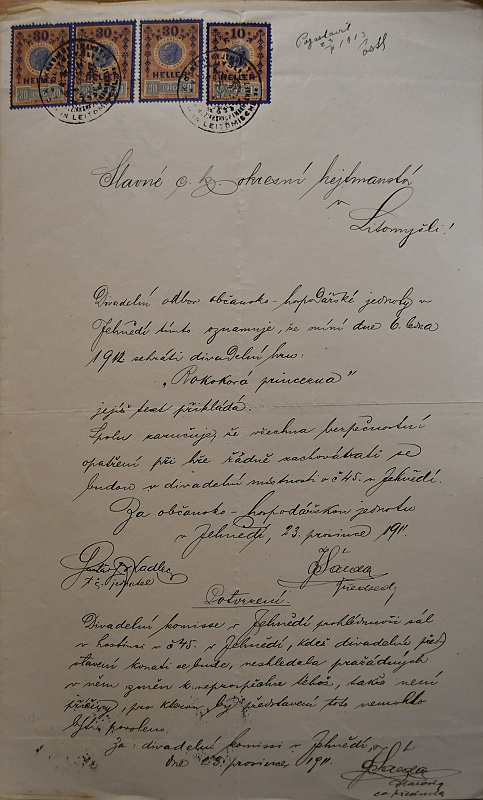 30 30 30 10
HELLER HELLER HELLER
30 1910
IN LEITOMISCHL
1912
Slavné c. k. okresní hejtmanství
v
Litomyšli!
Divadelní odbor občansko-hospodářské jednoty v
Jehnědí tímto oznamuje, že míní dne 6. ledna
1912 sehráti divadelní hru:
„Rokoková princezna"
jejíž text přikládá.
Spolek zaručuje, že všechna bezpečnostní
opatření při hře řádně zachovávati se
budou v divadelní místnosti v č 45. v Jehnědí.
Za občansko-hospodářskou jednotu
v Jehnědí, 23. prosince 1911.
Kadlec
t. č. jednatel
předseda
Potvrzení.
Divadelní komisse v Jehnědí prohlédnuvši sál
v hostinci v č 45. v Jehnědí, kdež divadelní před-
stavení konati se bude, neshledala pražádných
v něm změn k neprospěchu téhož, takže není
příčiny, pro kterou by představení toto nemohlo
býti povoleno.
Za divadelní komissi v Jehnědí,
dne 23. prosince 1911.